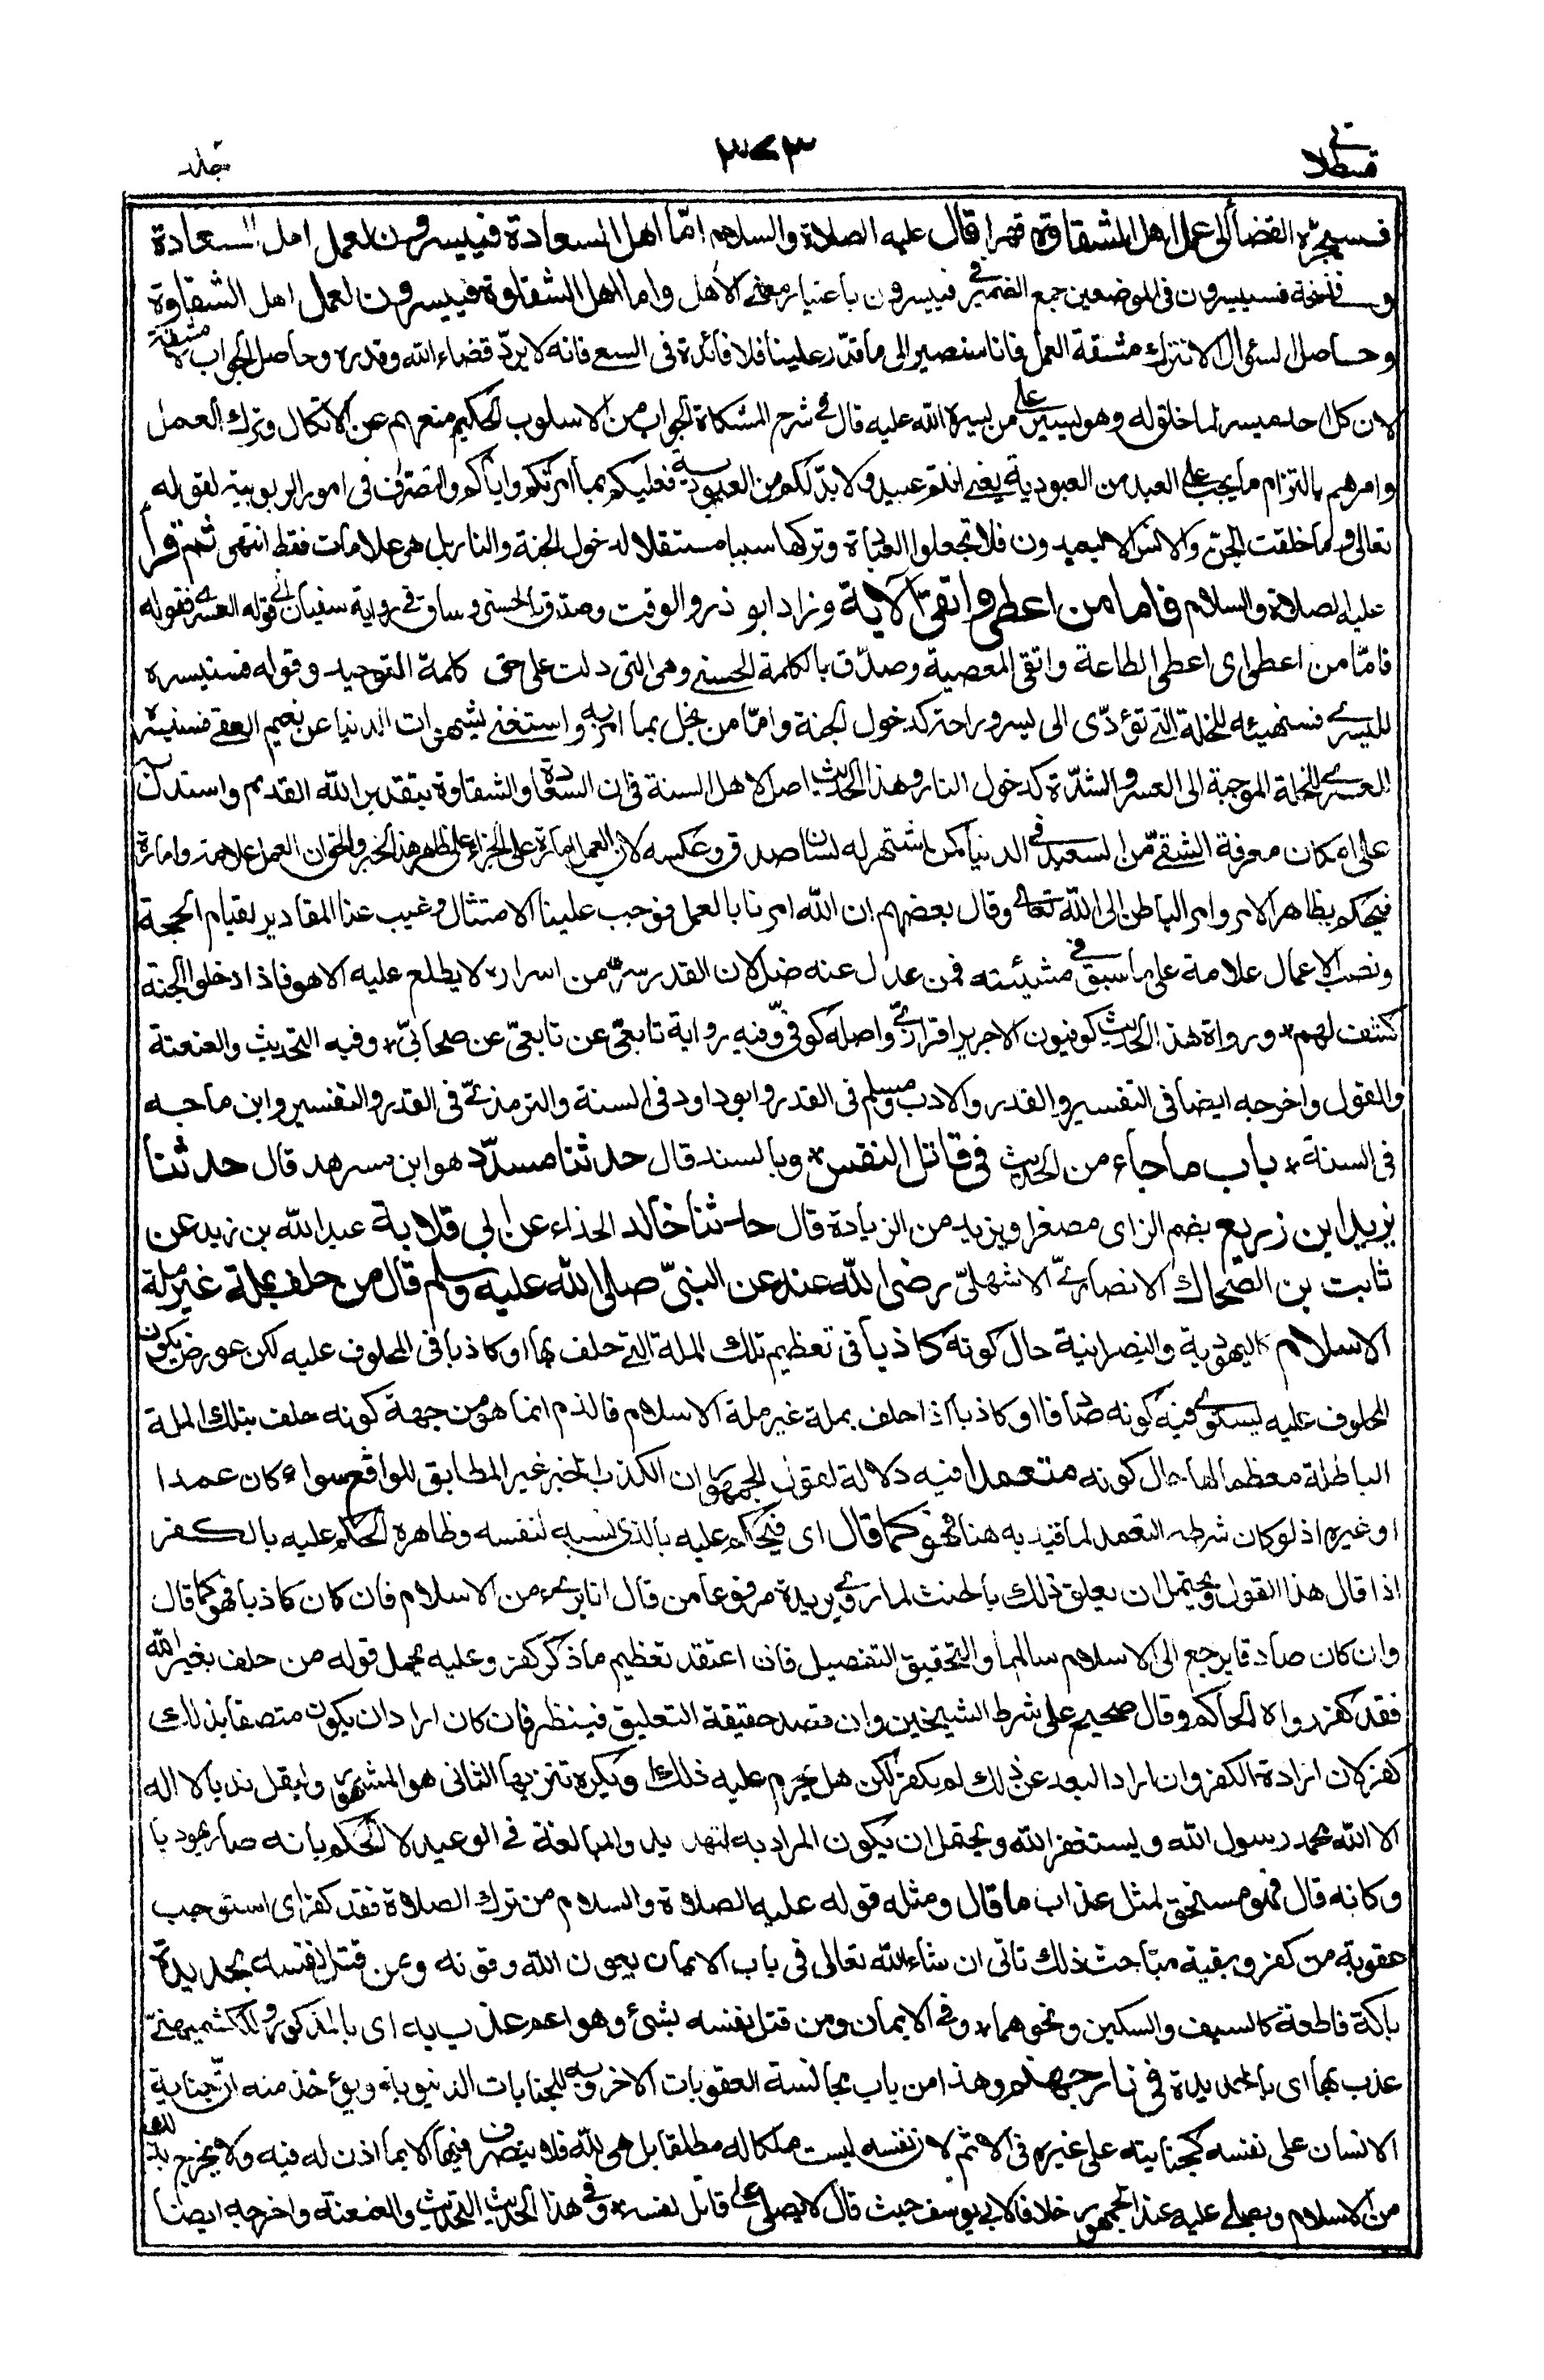 قسطلانى ٣٧٣ جلد
فسيجرّه القضاء الى عمل اهل الشقاوة قهرا قال عليه الصلاة والسلام امّا اهل السعادة فييسرون لعمل اهل السعادة
وفى نسخة فسييسرون فى الموضعين جمع الضمير فى فييسرون باعتبار معنى الاهل واما اهل الشقاوة فييسرون لعمل اهل الشقاوة
وحاصل السؤال الا نترك مشقة العمل فانا سنصير الى ما قدّر علينا فلا فائدة فى السعى فانه لا يردّ قضاء الله وقدره وحاصل الجواب لا مشقة
لان كل احد ميسر لما خلق له وهو يسير على من يسره الله عليه قال فى شرح المشكاة الجواب من الاسلوب الحكيم منعهم عن الاتكال وترك العمل
وامرهم بالتزام ما يجب على العبد من العبودية يعنى انتم عبيد ولا بدّ لكم من العبودية فعليكم بما امرتكم واياكم والتصرف فى امور الربوبية لقوله
تعالى وما خلقت الجن والانس الا ليعبدون فلا تجعلوا العبادة وتركها سببا مستقلا لدخول الجنة والنار بل هى علامات فقط انتهى ثم قرأ
عليه الصلاة والسلام فاما من اعطى واتقى الآية وزاد ابو ذر والوقت وصدق بالحسنى وساق فى رواية سفيان الى قوله العسرى فقوله
فامّا من اعطى اى اعطى الطاعة واتقى المعصية وصدّق بالكلمة الحسنى وهى التى دلت على حق كلمة التوحيد وقوله فسنيسره
لليسرى فسنهيئه للخلة التى تؤدّى الى يسر وراحة كدخول الجنة وامّا من بخل بما امر به واستغنى بشهوات الدنيا عن نعيم العقبى فسنيسره
للعسرى للخلة الموجبة الى العسر والشدّة كدخول النار وهذا الحديث اصل لاهل السنة فى ان السعادة والشقاوة بتقدير الله القديم واستدل به
على امكان معرفة الشقىّ من السعيد فى الدنيا كمن اشتهر له لسان صدق وعكسه لان العمل امارة على الجزاء على ظاهر هذا الخبر والحق ان العمل علامة وامارة
فيحكم بظاهر الامر وامر الباطن الى الله تعالى وقال بعضهم ان الله امرنا بالعمل فوجب علينا الامتثال وغيب عنا المقادير لقيام الحجة
ونصب الاعمال علامة على ما سبق فى مشيئته فمن عدل عنه ضل لان القدر سرّ من اسراره لا يطلع عليه الا هو فاذا دخلوا الجنة
كشف لهم * ورواة هذا الحديث كوفيون الا جرير افرازىّ واصله كوفىّ وفيه رواية تابعىّ عن تابعىّ عن صحابىّ * وفيه التحديث والعنعنة
والقول واخرجه ايضا فى التفسير والقدر والادب ومسلم فى القدر وابو داود فى السنة والترمذىّ فى القدر والتفسير وابن ماجه
فى السنة * باب ما جاء من الحديث فى قاتل النفس * وبالسند قال حدثنا مسدّد هو ابن مسرهد قال حدثنا
يزيد ابن زريع بضم الزاى مصغرا ويزيد من الزيادة قال حدثنا خالد الحذاء عن ابى قلابة عبد الله بن زيد عن
ثابت بن الضحاك الانصارىّ الاشهلىّ رضى الله عنه عن النبىّ صلى الله عليه وسلم قال من حلف بملة غير ملة
الاسلام كاليهودية والنصرانية حال كونه كاذبا فى تعظيم تلك الملة التى حلف بها او كاذبا فى المحلوف عليه لكن عورض بكون
المحلوف عليه يستوى فيه كونه صادقا او كاذبا اذا حلف بملة غير ملة الاسلام فالذم انما هو من جهة كونه حلف بتلك الملة
الباطلة معظما لها حال كونه متعمدا فيه دلالة لقول الجمهور ان الكذب الخبر غير المطابق للواقع سواء كان عمدا
او غيره اذ لو كان شرطه التعمد لما قيد به هنا فهو كما قال اى فيحكم عليه بالذى نسبه لنفسه وظاهره الحكم عليه بالكفر
اذا قال هذا القول ويحتمل ان يعلق ذلك بالحنث لما روى بريدة مرفوعا من قال انا برىء من الاسلام فان كان كاذبا فهو كما قال
وان كان صادقا يرجع الى الاسلام سالما والتحقيق التفصيل فان اعتقد تعظيم ما ذكر كفر وعليه يحمل قوله من حلف بغير الله
فقد كفر رواه الحاكم وقال صحيح على شرط الشيخين وان قصد حقيقة التعليق فينظر فان كان اراد ان يكون متصفا بذلك
كفر لان ارادة الكفر وان اراد البعد عن ذلك لم يكفر لكن هل يحرم عليه ذلك او يكره تنزيها الثانى هو المشهور وليقل ندبا لا اله
الا الله محمد رسول الله ويستغفر الله ويحتمل ان يكون المراد به التهديد والمبالغة فى الوعيد لا الحكم بانه صار يهوديا
وكانه قال فهو مستحق لمثل عذاب ما قال ومثله قوله عليه الصلاة والسلام من ترك الصلاة فقد كفر اى استوجب
عقوبة من كفر وبقية مباحث ذلك تاتى ان شاء الله تعالى فى باب الايمان بعون الله وقوته ومن قتل نفسه بحديدة
بآلة قاطعة كالسيف والسكين ونحوهما * وفى الايمان ومن قتل نفسه بشئ وهو اعم عذب به اى بالمذكور وللكشميهنىّ
عذب بها اى بالحديدة فى نار جهنم وهذا من باب مجانسة العقوبات الاخروية للجنايات الدنيوية ويؤخذ منه انّ جناية
الانسان على نفسه كجنايته على غيره فى الاثم لان نفسه ليست ملكا له مطلقا بل هى لله فلا يتصرف فيها الا بما اذن له فيه ولا يخرج بذلك
من الاسلام ويصلى عليه عند الجمهور خلافا لابى يوسف حيث قال لا يصلى على قاتل نفسه * وفى هذا الحديث التحديث والعنعنة واخرجه ايضا